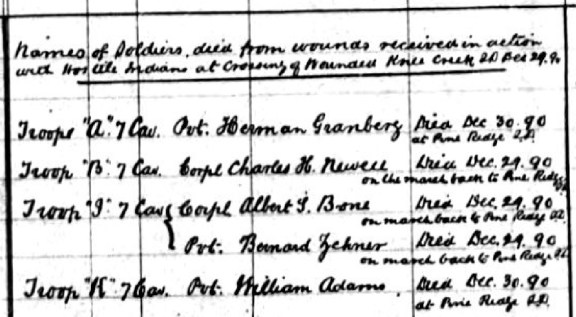 Names of Soldiers, died from wounds received in action
with Hostile Indians at Crossing of Wounded Knee Creek S.D. Dec 29. 90
Troop "A" 7 Cav. Pvt. Herman Granberg Died Dec. 30. 90
at Pine Ridge S.D.
Troop "B" 7 Cav. Corpl Charles H. Newell Died Dec. 29. 90
on the march back to Pine Ridge
Troop "I" 7 Cav { Corpl Albert S. Bone Died Dec. 29. 90
on march back to Pine Ridge S.D.
Pvt. Bernard Zehner Died Dec. 29. 90
on march back to Pine Ridge S.D.
Troop "K" 7 Cav. Pvt. William Adams. Died Dec. 30. 90
at Pine Ridge S.D.